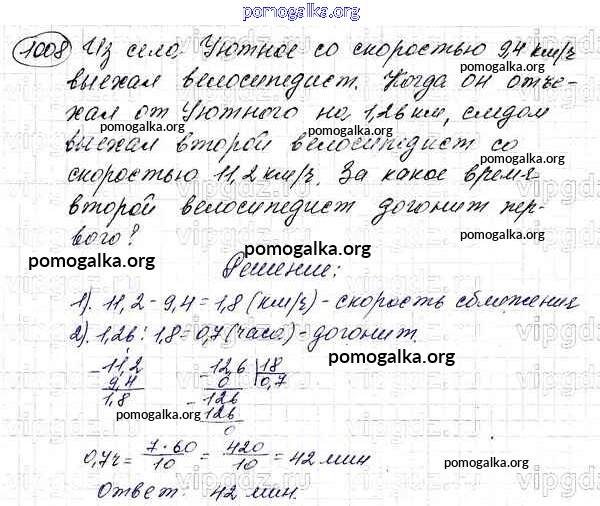 pomogalka.org
1008 Из села Уютное со скоростью 9,4 км/ч
выехал велосипедист. Когда он отъе-
pomogalka.org
хал от Уютного на 1,26 км, следом
pomogalka.org
выехал второй велосипедист со
pomogalka.org
скоростью 11,2 км/ч. За какое время
второй велосипедист догонит пер-
pomogalka.org
вого?
pomogalka.org
pomogalka.org
Решение:
1). 11,2 - 9,4 = 1,8 (км/ч) - скорость сближения
2). 1,26 : 1,8 = 0,7 (часа) - догонит.
pomogalka.org
- 11,2 - 12,6 | 18
9,4 0 0,7
1,8 - 126
pomogalka.org
126
0
0,7ч = 7·60/10 = 420/10 = 42 мин
pomogalka.org
Ответ: 42 мин.
vipgdz.ru